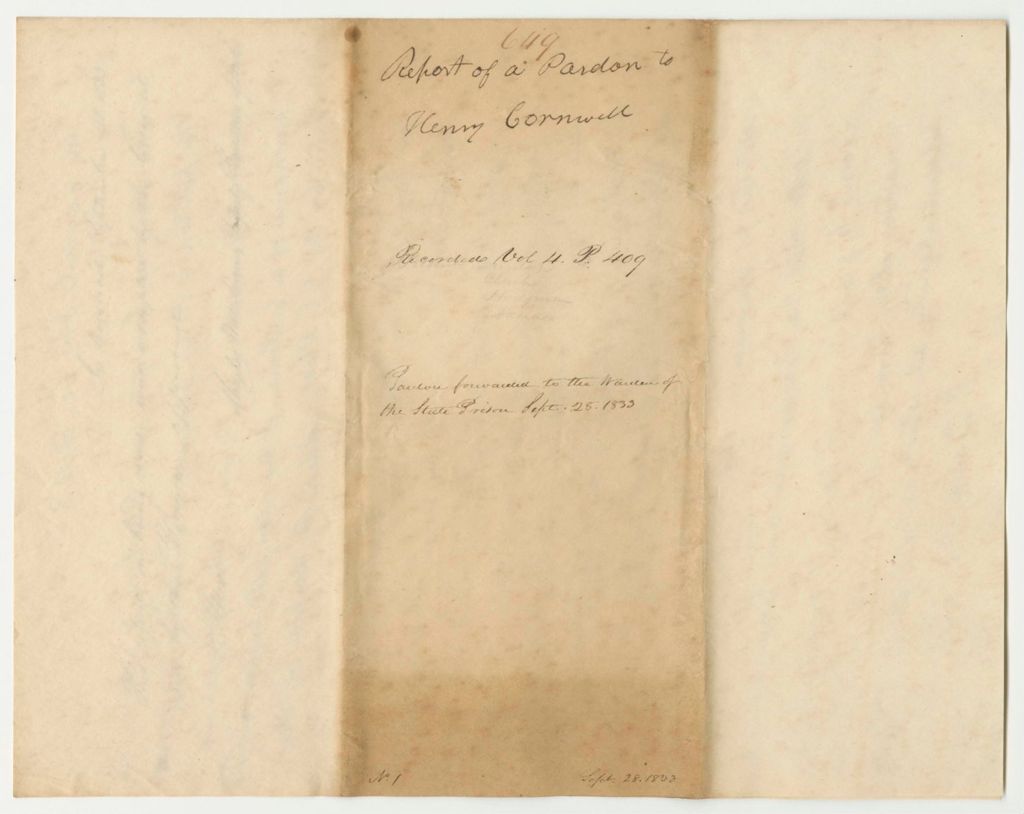 649
Report of a Pardon to
Henry Cornwell
Recorded Vol 4. P. 409
Pardon forwarded to the Warden of
the State Prison Sept. 28. 1833
No. 1
Sept. 28. 1833